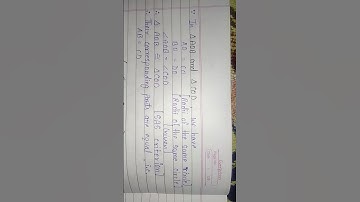 ∵ In △AOB and △COD, we have
AO = CO [Radii of the same circle]
BO = DO [Radii of the same circle]
∠AOB = ∠COD [Given]
∴ △AOB ≅ △COD [SAS criterion]
∴ Their corresponding parts are equal, i.e.
AB = CD